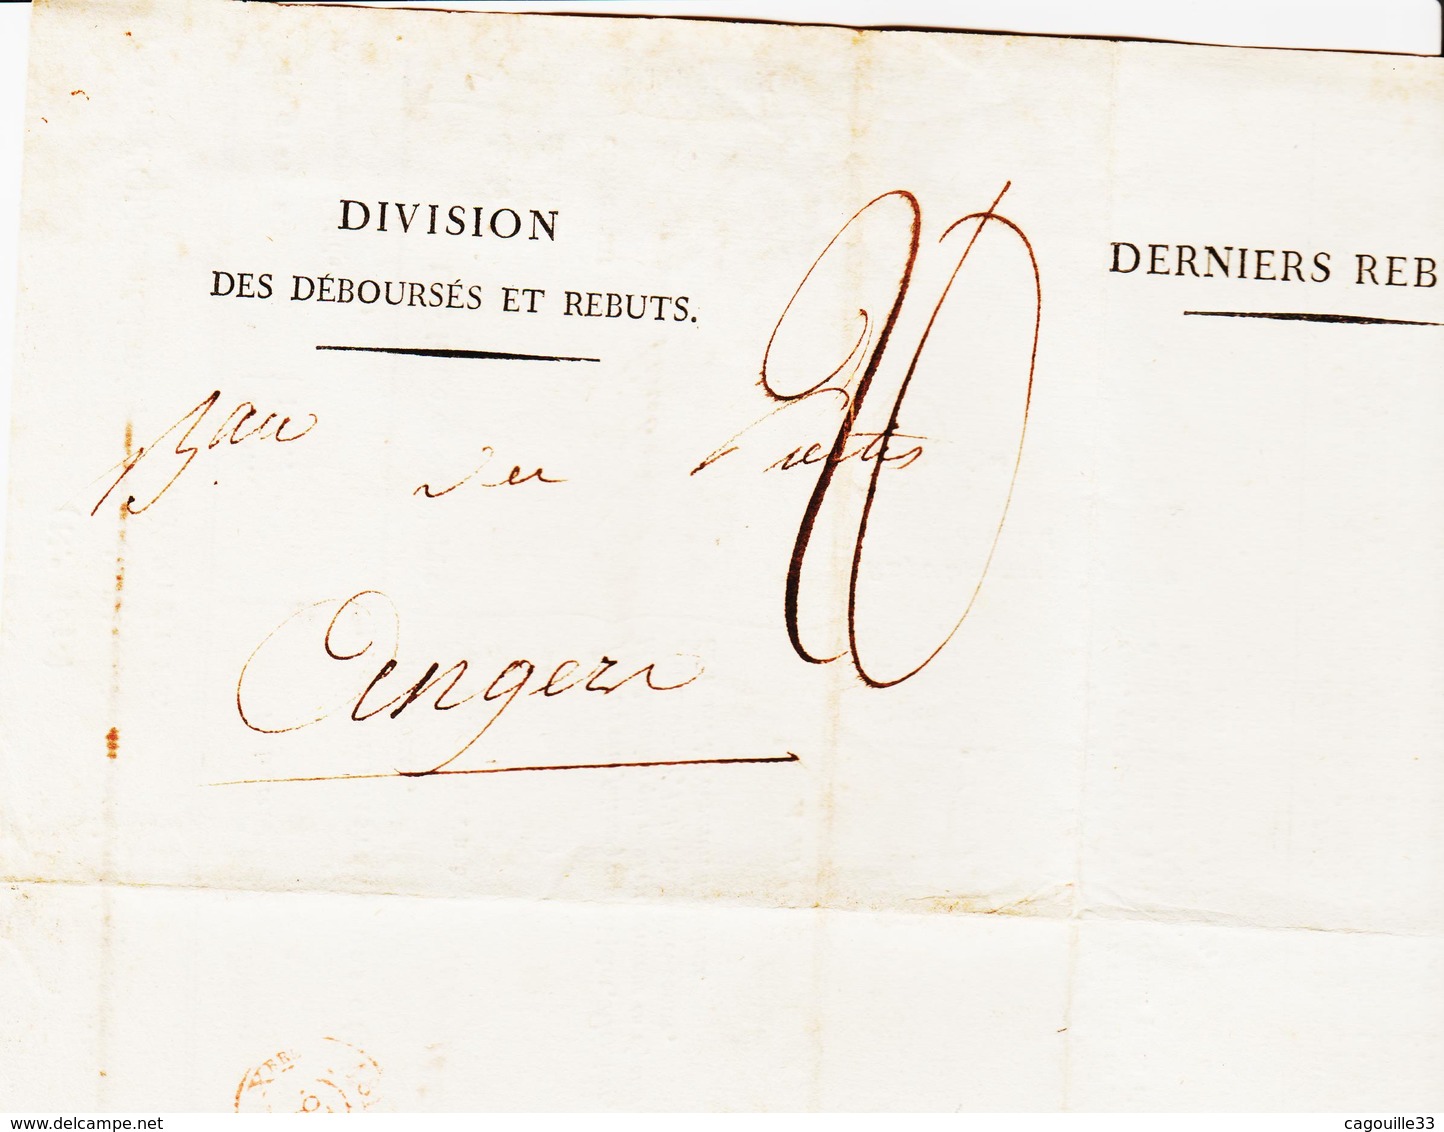 DIVISION
DES DÉBOURSÉS ET REBUTS.
DERNIERS REB
20
Bau des Postes
Angers
www.delcampe.net
cagouille33